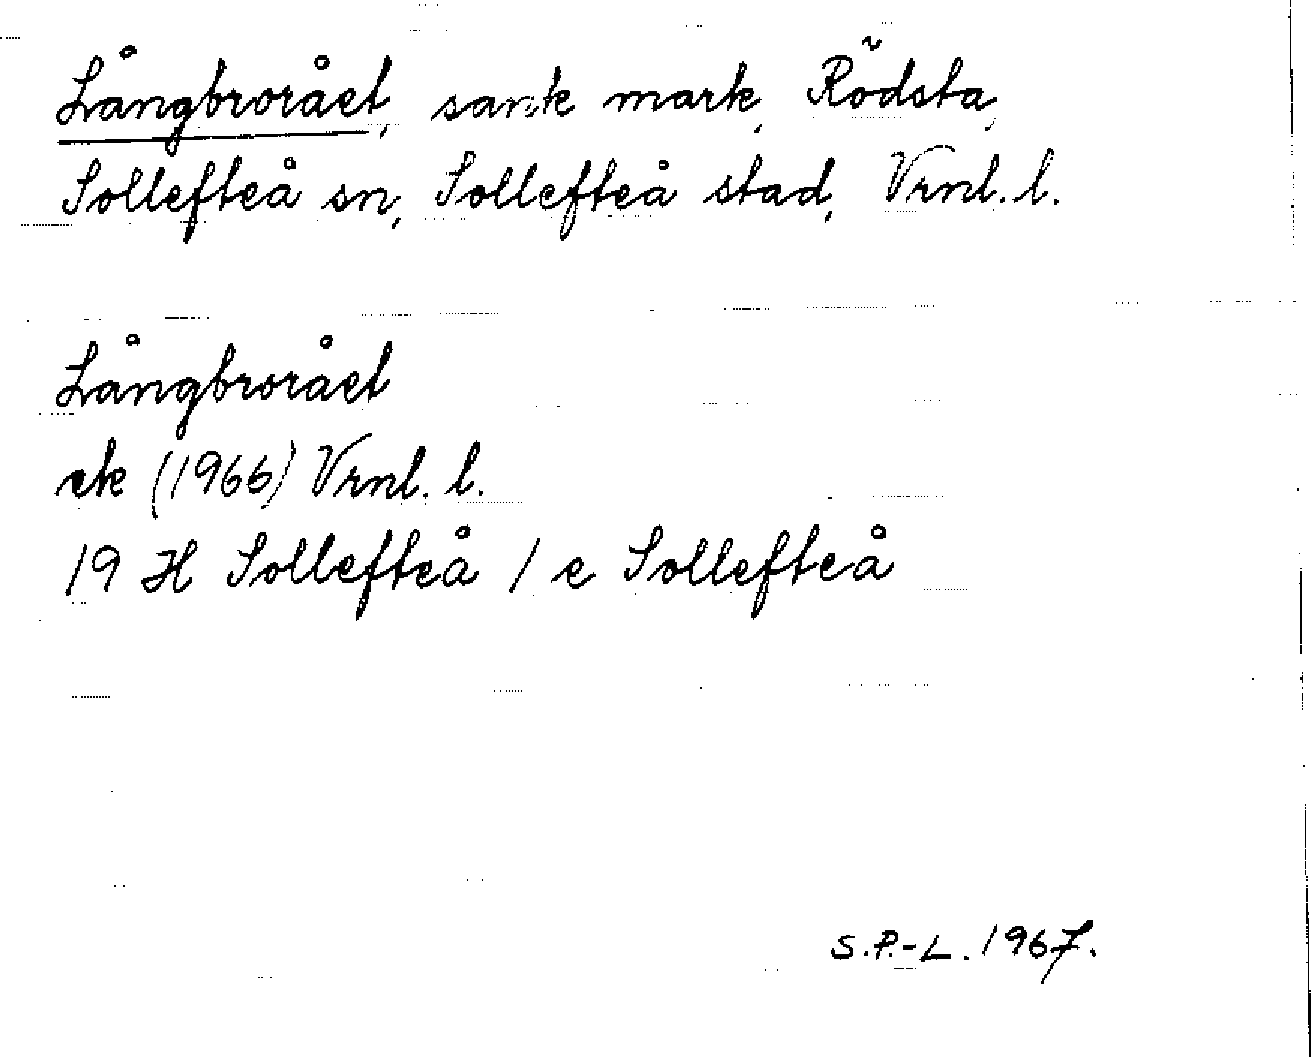 Långbrorået, sank mark, Rödsta,
Sollefteå sn, Sollefteå stad, Vrnl. l.
Långbrorået
ek (1966) Vrnl. l.
19 H Sollefteå / e Sollefteå
S.P.-L. 1967.